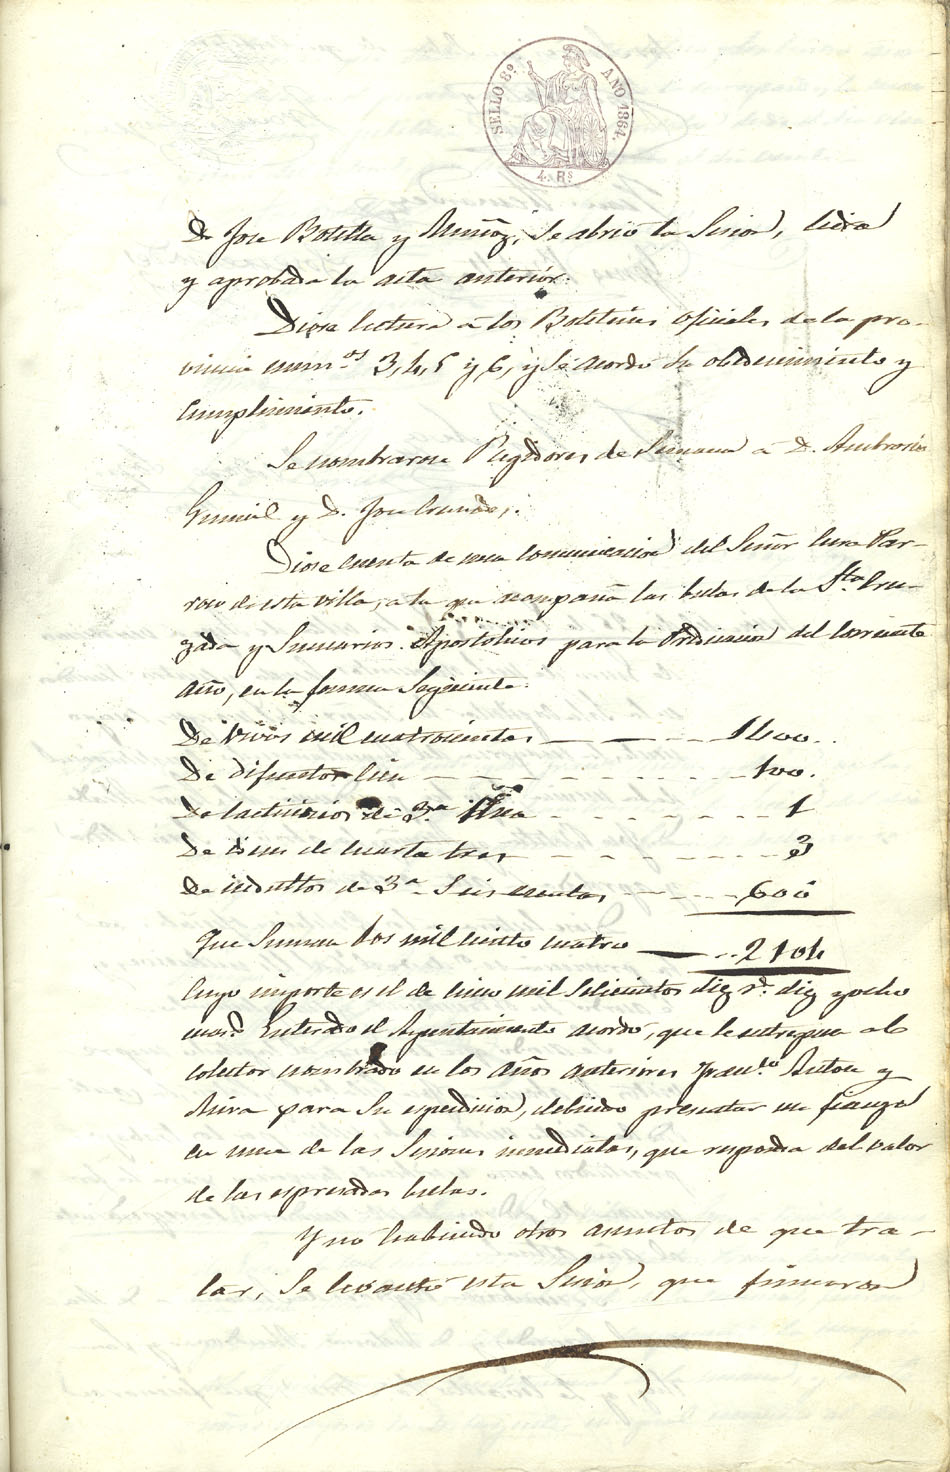 SELLO 8º AÑO 1864.
4 Rs
Dn Jose Botella y Muñóz, se abrió la Sesion, leida
y aprobada la acta anterior.
Diose lectura á los Boletines oficiales de la pro-
vincia numos 3, 4, 5 y 6, y se acordó su obedecimiento y
cumplimiento.
Se nombraron Regidores de Semana á D. Ambrosio
y D. Jose
Diose cuenta de una comunicacion del Señor Cura Par-
roco de esta villa, a la que acompaña las bulas de la Sta Cru-
zada y Sumarios Apostolicos para la Predicacion del corriente
año, en la forma siguiente.
De vivos mil cuatrocientas 1400.
De difuntos cien 100.
De lacticinios de 3a una 1
De de cuarta tres 3
De indultos de 3a Seiscientos 600
Que suman dos mil ciento cuatro 2104
Cuyo importe es el de cinco mil seiscientos diez rs. diez y ocho
mars. Enterado el Ayuntamiento acordó, que se entreguen al
colector nombrado en los años anteriores Franco Anton y
Mira para su espendicion, debiendo presentar un fianza
en una de las Sesiones inmediatas, que responda del valor
de las espresadas bulas.
Y no habiendo otros asuntos de que tra-
tar, se levantó esta Sesion, que firmaron